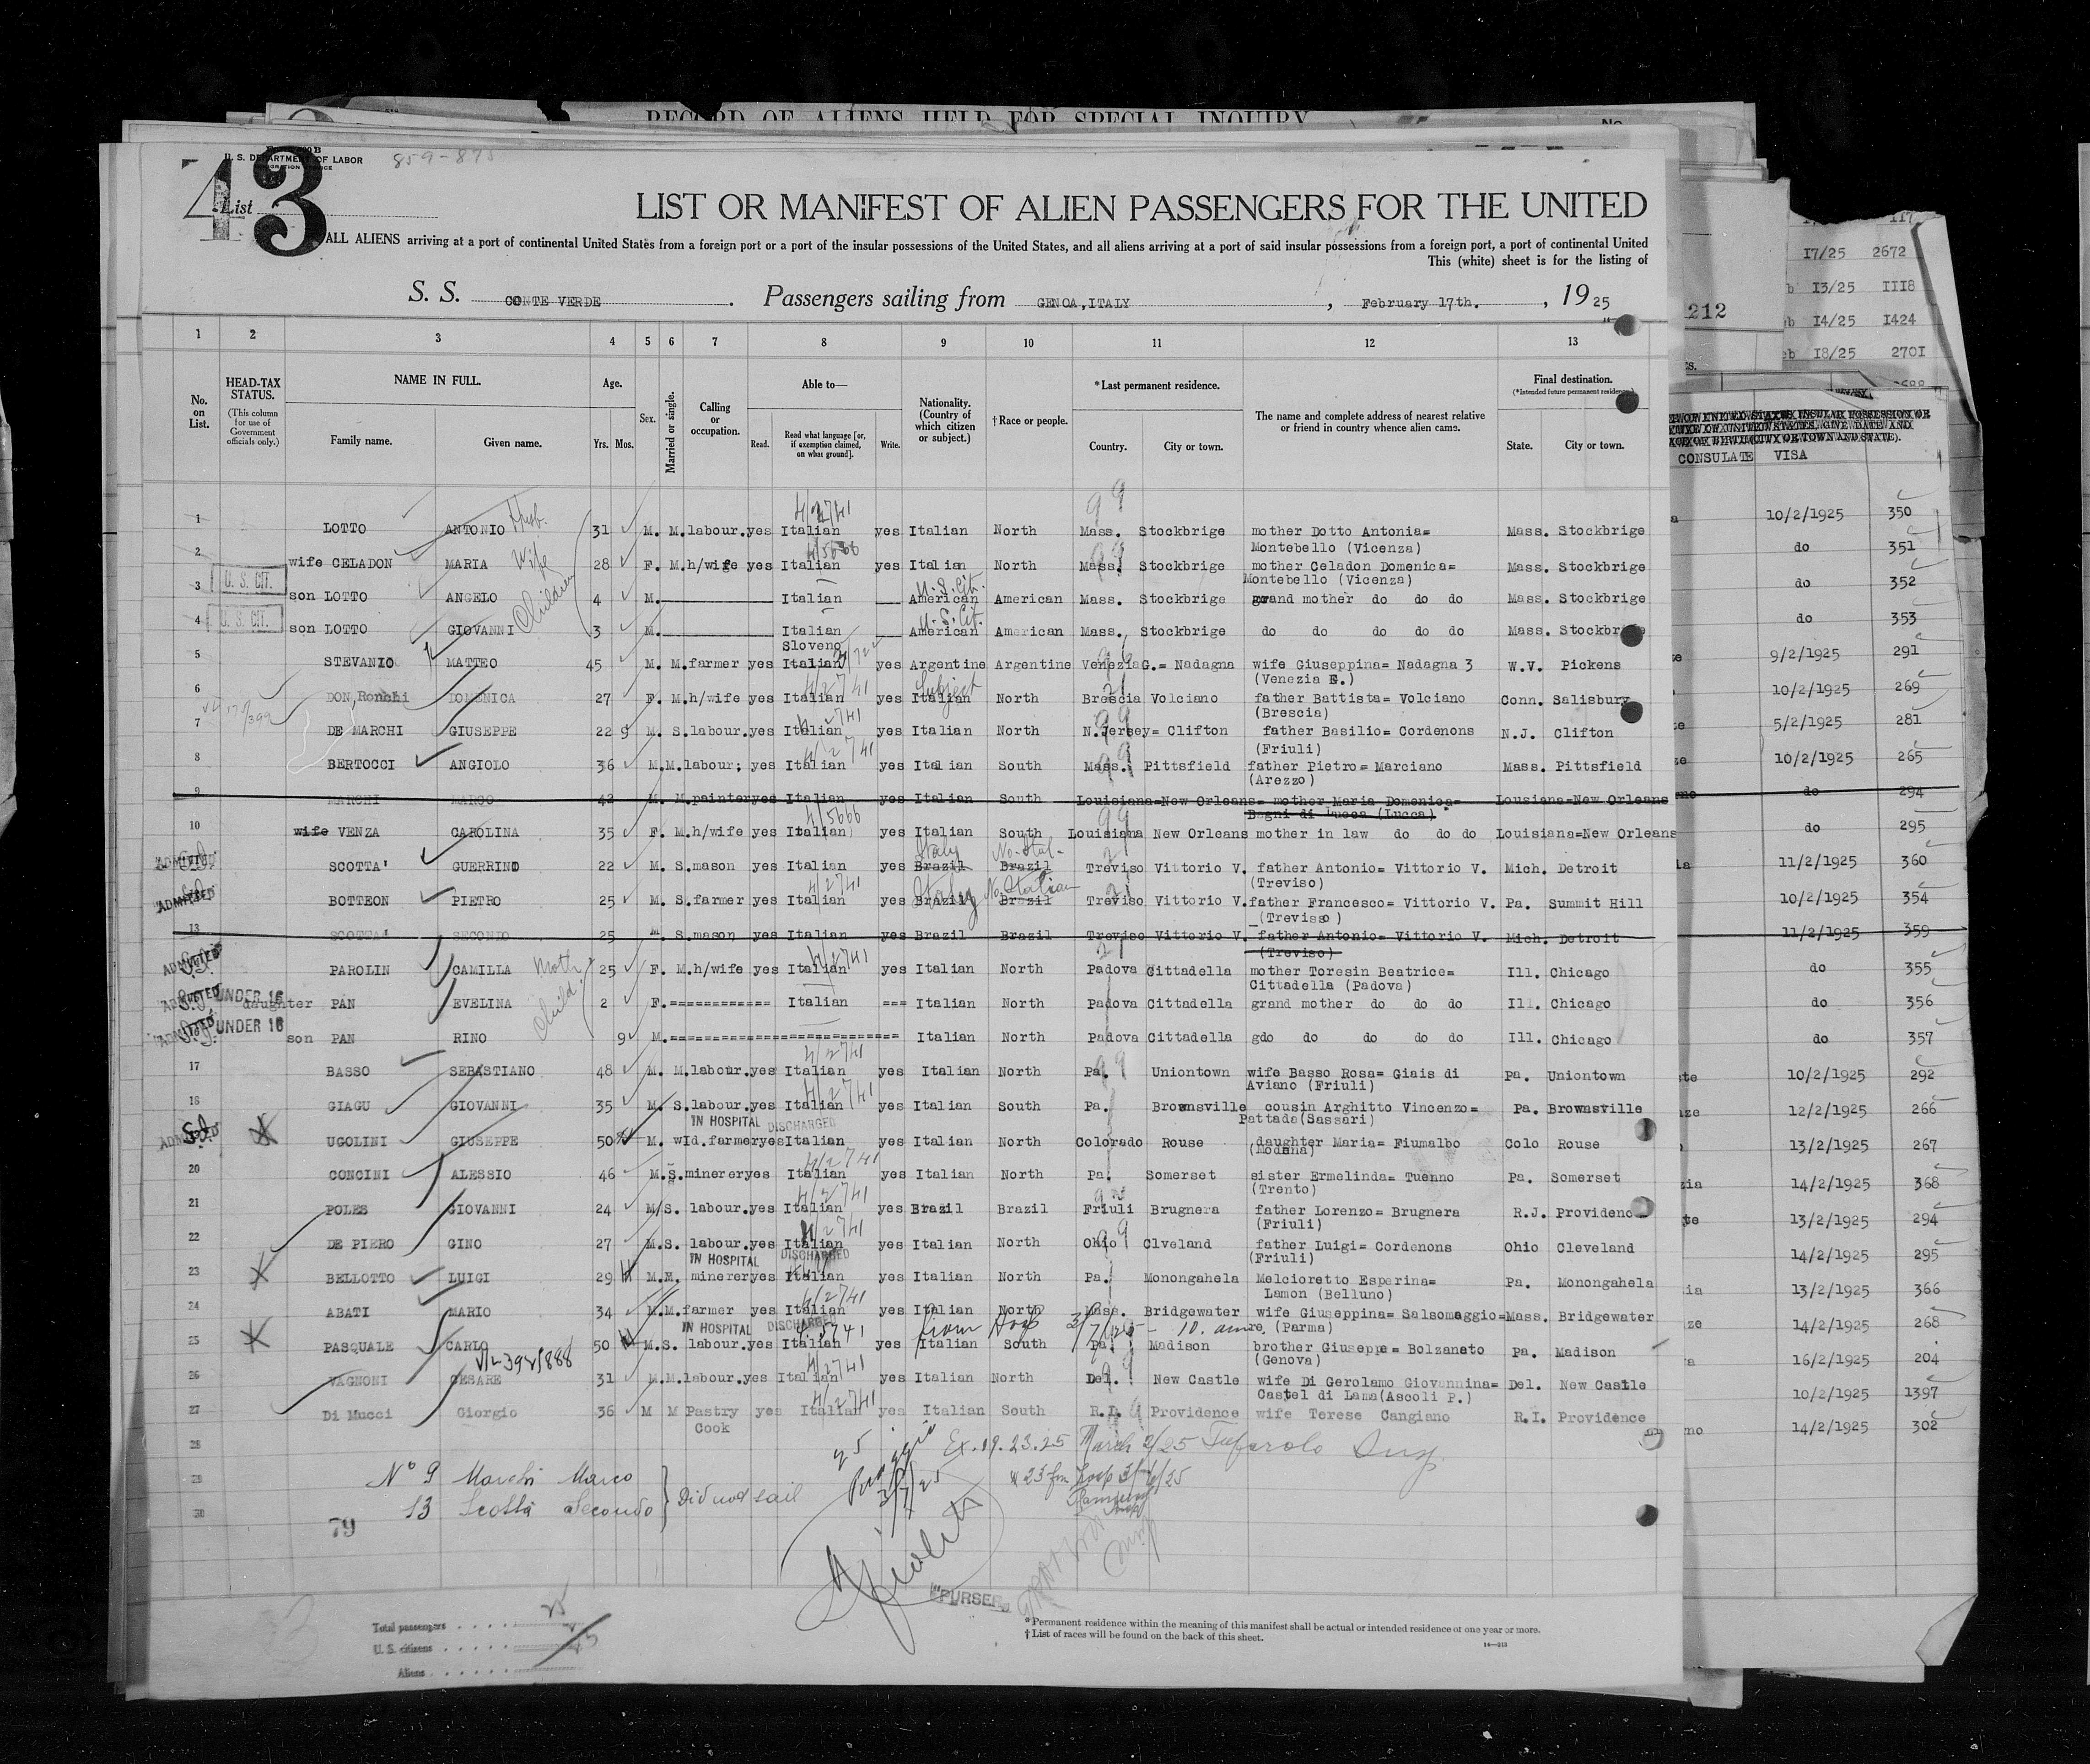 RECORD OF ALIENS HELD FOR SPECIAL INQUIRY
No.
U. S. DEPARTMENT OF LABOR
859-875
List 43
LIST OR MANIFEST OF ALIEN PASSENGERS FOR THE UNITED
ALL ALIENS arriving at a port of continental United States from a foreign port or a port of the insular possessions of the United States, and all aliens arriving at a port of said insular possessions from a foreign port, a port of continental United
This (white) sheet is for the listing of
S. S. CONTE VERDE. Passengers sailing from GENOA, ITALY, February 17th., 1925
1 2 3 4 5 6 7 8 9 10 11 12 13
No. on List.
HEAD-TAX STATUS.
(This column for use of Government officials only.)
NAME IN FULL.
Family name. Given name.
Age.
Yrs. Mos.
Sex.
Married or single.
Calling or occupation.
Able to—
Read. Read what language [or, if exemption claimed, on what ground]. Write.
Nationality. (Country of which citizen or subject.)
†Race or people.
*Last permanent residence.
Country. City or town.
The name and complete address of nearest relative or friend in country whence alien came.
Final destination.
(*Intended future permanent residence.)
State. City or town.
CONSULATE VISA
1 LOTTO ANTONIO Husb. 31 M. M. labour. yes Italian yes Italian North Mass. Stockbrige mother Dotto Antonia= Mass. Stockbrige 10/2/1925 350
Montebello (Vicenza)
2 wife CELADON MARIA Wife 28 F. M. h/wife yes Italian yes Italian North Mass. Stockbrige mother Celadon Domenica= Mass. Stockbrige do 351
Montebello (Vicenza)
3 U. S. CIT. son LOTTO ANGELO Children 4 M. Italian American U.S. Cit. American Mass. Stockbrige grand mother do do do Mass. Stockbrige do 352
4 U. S. CIT. son LOTTO GIOVANNI 3 M. Italian American U.S. Cit. American Mass. Stockbrige do do do do do Mass. Stockbrige do 353
Sloveno
5 STEVANIO MATTEO 45 M. M. farmer yes Italian yes Argentine Argentine Venezia G.= Nadagna wife Giuseppina= Nadagna 3 W.V. Pickens 9/2/1925 291
Subject (Venezia G.)
6 DON, Ronchi DOMENICA 27 F. M. h/wife yes Italian yes Italian North Brescia Volciano father Battista= Volciano Conn. Salisbury 10/2/1925 269
(Brescia)
7 DE MARCHI GIUSEPPE 22 9 M. S. labour. yes Italian yes Italian North N.Jersey= Clifton father Basilio= Cordenons N.J. Clifton 5/2/1925 281
(Friuli)
8 BERTOCCI ANGIOLO 36 M. M. labour; yes Italian yes Italian South Mass. Pittsfield father Pietro= Marciano Mass. Pittsfield 10/2/1925 265
(Arezzo)
9 MARCHI MARCO 42 M. M. painter yes Italian yes Italian South Louisiana=New Orleans= mother Maria Domenica= Lousiana=New Orleans do 294
Bagni di Lucca (Lucca)
10 wife VENZA CAROLINA 35 F. M. h/wife yes Italian yes Italian South Louisiana New Orleans mother in law do do do Louisiana=New Orleans do 295
ADMITTED SCOTTA' GUERRINO 22 M. S. mason yes Italian yes Brazil Italy Brazil No. Ital. Treviso Vittorio V. father Antonio= Vittorio V. Mich. Detroit 11/2/1925 360
(Treviso)
ADMITTED BOTTEON PIETRO 25 M. S. farmer yes Italian yes Brazil Italy Brazil No. Italian Treviso Vittorio V. father Francesco= Vittorio V. Pa. Summit Hill 10/2/1925 354
(Treviso)
13 SCOTTA' SECONDO 25 M. S. mason yes Italian yes Brazil Brazil Treviso Vittorio V. father Antonio= Vittorio V. Mich. Detroit 11/2/1925 359
(Treviso)
ADMITTED PAROLIN CAMILLA Moth. 25 F. M. h/wife yes Italian yes Italian North Padova Cittadella mother Toresin Beatrice= Ill. Chicago do 355
Cittadella (Padova)
ADMITTED UNDER 16 daughter PAN EVELINA Child. 2 F.============ Italian === Italian North Padova Cittadella grand mother do do do Ill. Chicago do 356
ADMITTED UNDER 16 son PAN RINO 9 M.======================== Italian North Padova Cittadella gdo do do do do Ill. Chicago do 357
17 BASSO SEBASTIANO 48 M. M. labour. yes Italian yes Italian North Pa. Uniontown wife Basso Rosa= Giais di Pa. Uniontown 10/2/1925 292
Aviano (Friuli)
18 GIAGU GIOVANNI 35 M. S. labour. yes Italian yes Italian South Pa. Brownsville cousin Arghitto Vincenzo= Pa. Brownsville 12/2/1925 266
IN HOSPITAL DISCHARGED Pattada(Sassari)
ADMITTED UGOLINI GIUSEPPE 50 M. wid. farmer yes Italian yes Italian North Colorado Rouse daughter Maria= Fiumalbo Colo Rouse 13/2/1925 267
(Modena)
20 CONCINI ALESSIO 46 M. S. miner yes Italian yes Italian North Pa. Somerset sister Ermelinda= Tuenno Pa. Somerset 14/2/1925 368
(Trento)
21 POLES GIOVANNI 24 M. S. labour. yes Italian yes Brazil Brazil Friuli Brugnera father Lorenzo= Brugnera R.J. Providence 13/2/1925 294
(Friuli)
22 DE PIERO GINO 27 M. S. labour. yes Italian yes Italian North Ohio Clveland father Luigi= Cordenons Ohio Cleveland 14/2/1925 295
IN HOSPITAL DISCHARGED (Friuli)
23 BELLOTTO LUIGI 29 M. M. miner yes Italian yes Italian North Pa. Monongahela Melcioretto Esperina= Pa. Monongahela 13/2/1925 366
Lamon (Belluno)
24 ABATI MARIO 34 M. M. farmer yes Italian yes Italian North Mass. Bridgewater wife Giuseppina= Salsomaggio= Mass. Bridgewater 14/2/1925 268
IN HOSPITAL DISCHARGED from Hosp 3/7/25 - 10. am re. (Parma)
25 PASQUALE CARLO 50 M. S. labour. yes Italian yes Italian South Pa. Madison brother Giuseppe= Bolzaneto Pa. Madison 16/2/1925 204
(Genova)
26 VAGNONI CESARE 31 M. M. labour. yes Italian yes Italian North Del. New Castle wife Di Gerolamo Giovannina= Del. New Castle 10/2/1925 1397
Castel di Lama(Ascoli P.)
27 Di Mucci Giorgio 36 M M Pastry yes Italian yes Italian South R.I. Providence wife Terese Cangiano R.I. Providence 14/2/1925 302
Cook
28 Ex. 19.23.25 March 2/25 Insp.
29 No 9 Marchi Marco
30 13 Scotta Secondo } Did not sail
79
PURSER
Total passengers
U. S. citizens
Aliens
* Permanent residence within the meaning of this manifest shall be actual or intended residence of one year or more.
† List of races will be found on the back of this sheet.
14—213
117
17/25 2672
13/25 1118
14/25 1424
18/25 2701
212